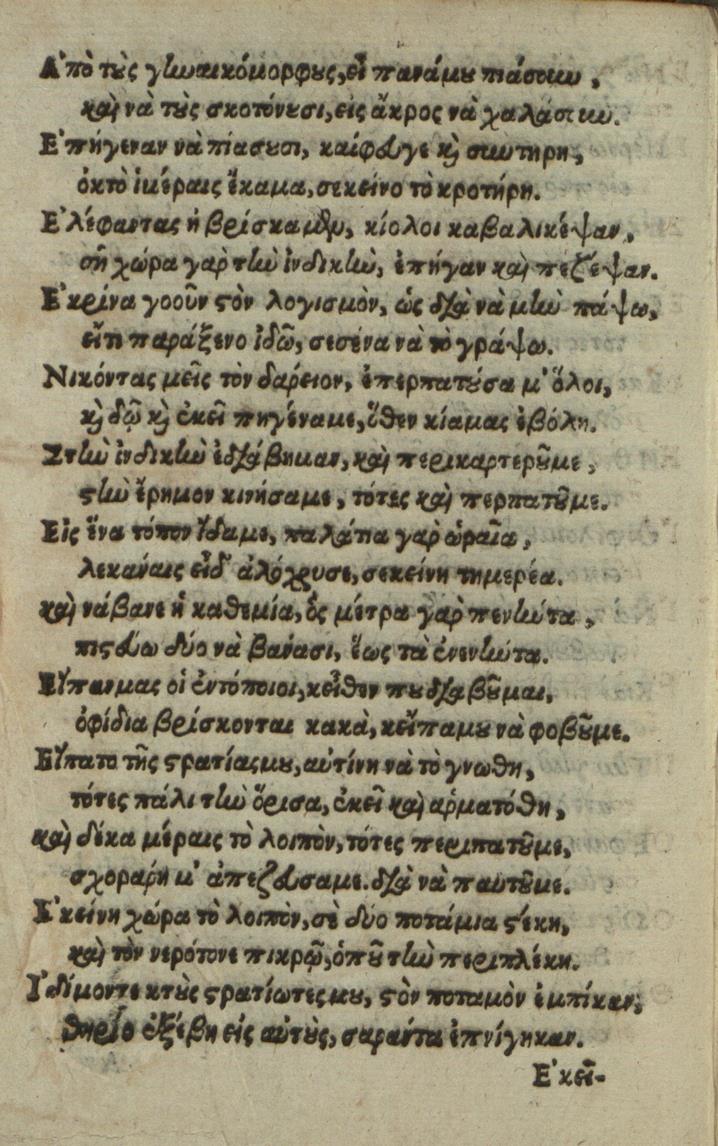 Α᾿πὸ τὺς γιωαικόμορφυς, εἶ πανάμυ πιάσουν,
καὶ νὰ τὺς σκοτόνυσι, εἰς ἄκρος νὰ χαλάσουν.
Ε᾿πήγεναν νὰ πίασυσι, καίφυγε κὶ σωτήρη,
ὀκτὸ ἱμέραις ἔκαμα, σεκείνο τὸ κροτήρη.
Ε᾿λέφαντας ἡ βρίσκαμεν, κίολοι καβαλικέψαν,
σἢ χώρα γαρ τὴν ἰνδικὴν, ἐπήγαν καὶ πεζέψαν.
Ε᾿κρίνα γοοῦν στὸν λογισμὸν, ὡς διὰ νὰ μὴν πάψω,
εἴτι παράξενο ἰδῶ, σεσένα νὰ τὸ γράψω.
Νικόντας μεῖς τὸν δαρείον, ἐπερπατύσα μ᾿ ὅλοι,
κὶ δῶ κὶ ἐκεῖ πηγέναμε, ὅθεν κίαμας ἐβόλη.
Στὴν ἰνδικὴν ἐδιάβημαν, καὶ περικαρτερῦμε,
στὴν ἔρημον κινήσαμε, τότες καὶ περπατῦμε.
Εἰς ἕνα τόπον ἴδαμε, παλάτια γαρ ὡραῖα,
λεκάναις εἶδ᾿ ἀλόχρυσε, σεκείνη τημερέα.
καὶ νάβανε ἡ καθεμία, ὃς μέτρα γαρ πενήντα,
πιστεύω δύο νὰ βανασι, ἕως τὰ ἐνενήντα.
Εἴπανμας οἱ ἐντόποιοι, κεῖθεν πυ διαβῦμαι,
ὀφίδια βρίσκονται κακὰ, κεἴπαμυ νὰ φοβῦμε.
Εἴπατο τῆς στρατίαςμυ, αὐτίνη νὰ τὸ γνωθη,
τότες πάλι τὴν ὅρισα, ἐκεῖ καὶ αρματόθη,
καὶ δέκα μέραις τὸ λοιπὸν, τότες περιπατῦμε,
σχοραρη μ᾿ ἀπεζεύσαμε. διὰ νὰ παυτῦμε.
Ε᾿κείνη χώρα τὸ λοιπὸν, σὲ δύο ποτάμια στέκη,
καὶ τὸν νερότονε πικρῷ, ὁπῦ τὴν περιπλέκη.
Ι῎διμοντε κτὺς στρατίωτεςμυ, στὸν ποταμὸν ἐμπίκαν,
θηρίο ἐξέβη εἰς αὐτὺς, σαράντα ἐπνίγηκαν.
Ε᾿κεῖ-